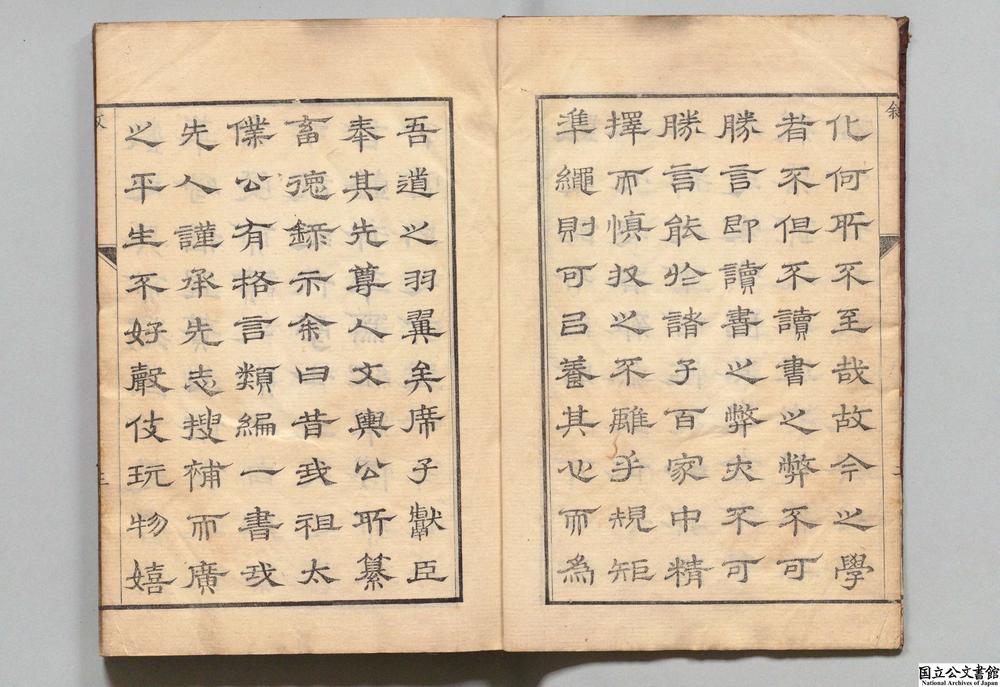 敘
二
化何所不至哉故今之學
者不但不讀書之弊不可
勝言即讀書之弊亦不可
勝言能於諸子百家中精
擇而慎收之不離乎規矩
準繩則可以養其心而為
吾道之羽翼矣席子獻臣
奉其先尊人文輿公所纂
畜德錄示余曰昔我祖太
僕公有格言類編一書我
先人謹承先志搜補而廣
之平生不好聲伎玩物嬉
三
国立公文書館
National Archives of Japan